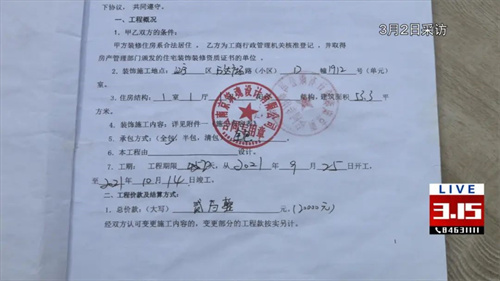 3月2日采访
下协议,共同遵守。
一、工程概况
1. 甲乙双方的条件:
甲方装修住房系合法居住,乙方为工商行政管理机关核准登记,并取得
房产管理部门颁发的住宅装饰装修资质证书的单位。
2. 装饰施工地点: 区 路(小区) 幢 1912 号(单元)
室。
3. 住房结构: 1 室 1 厅 结构,建筑面积 53.3 平
方米。
4. 装饰施工内容:详见附件
5. 承包方式:(全包、半包、清包)
6. 本工程由 设计。
7. 工期:工程期限 天,从 2021 年 9 月 25 日开工,
至 2021 年 10 月 14 日竣工。
二、工程价款及结算方式:
1. 总价款:(大写) 贰万整 元,(20000元)
经双方认可变更施工内容的,变更部分的工程款按实另计。
合同专用章
1
LIVE
3.15
84631111